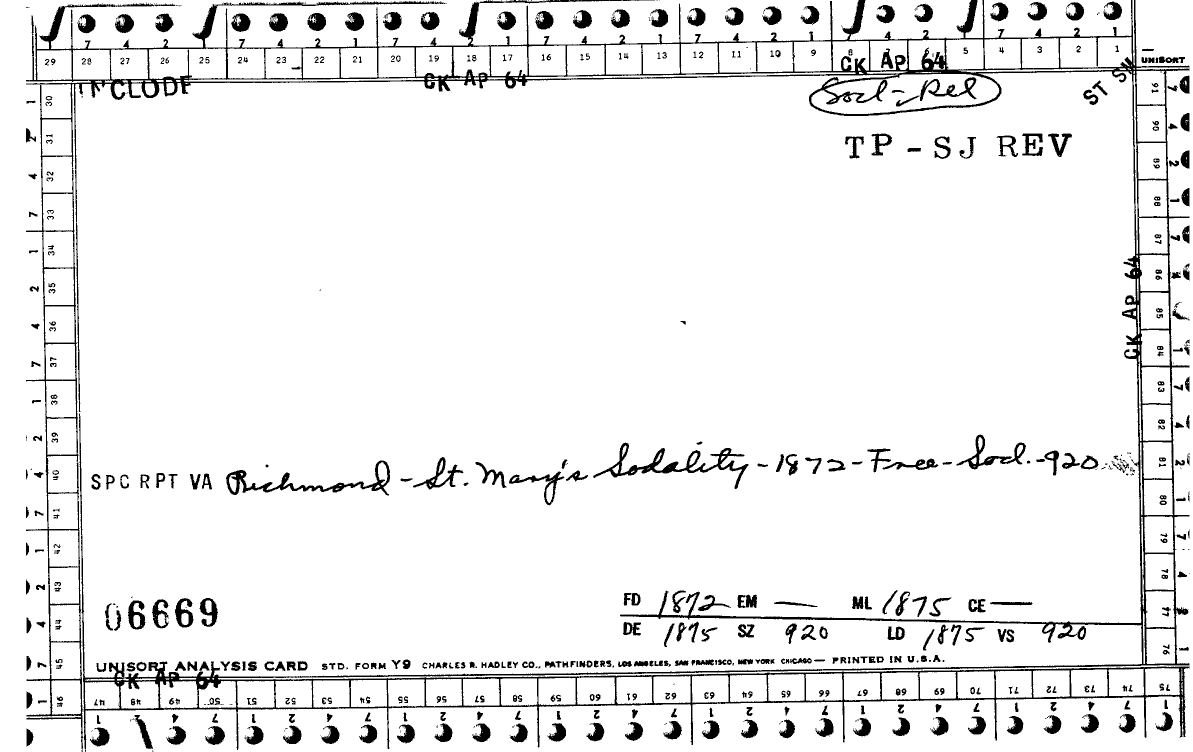 7 4 2 1 7 4 2 1 7 4 2 1 7 4 2 1 7 4 2 1 7 4 2 1
29 28 27 26 25 24 23 22 21 20 19 18 17 16 15 14 13 12 11 10 9 8 7 6 5 4 3 2 1
UNISORT
CK AP 64 CK AP 64
ST SW
Socl-Rel
TP - SJ REV
CK AP 64
SPC RPT VA Richmond - St. Mary's Sodality - 1872 - Free - Socl. - 920
06669
FD 1872 EM — ML 1875 CE —
DE 1875 SZ 920 LD 1875 VS 920
UNISORT ANALYSIS CARD STD. FORM Y9 CHARLES R. HADLEY CO., PATHFINDERS, LOS ANGELES, SAN FRANCISCO, NEW YORK CHICAGO — PRINTED IN U.S.A.
CK AP 64
30 31 32 33 34 35 36 37 38 39 40 41 42 43 44 45 46
47 48 49 50 51 52 53 54 55 56 57 58 59 60 61 62 63 64 65 66 67 68 69 70 71 72 73 74 75
91 90 89 88 87 86 85 84 83 82 81 80 79 78 77 76